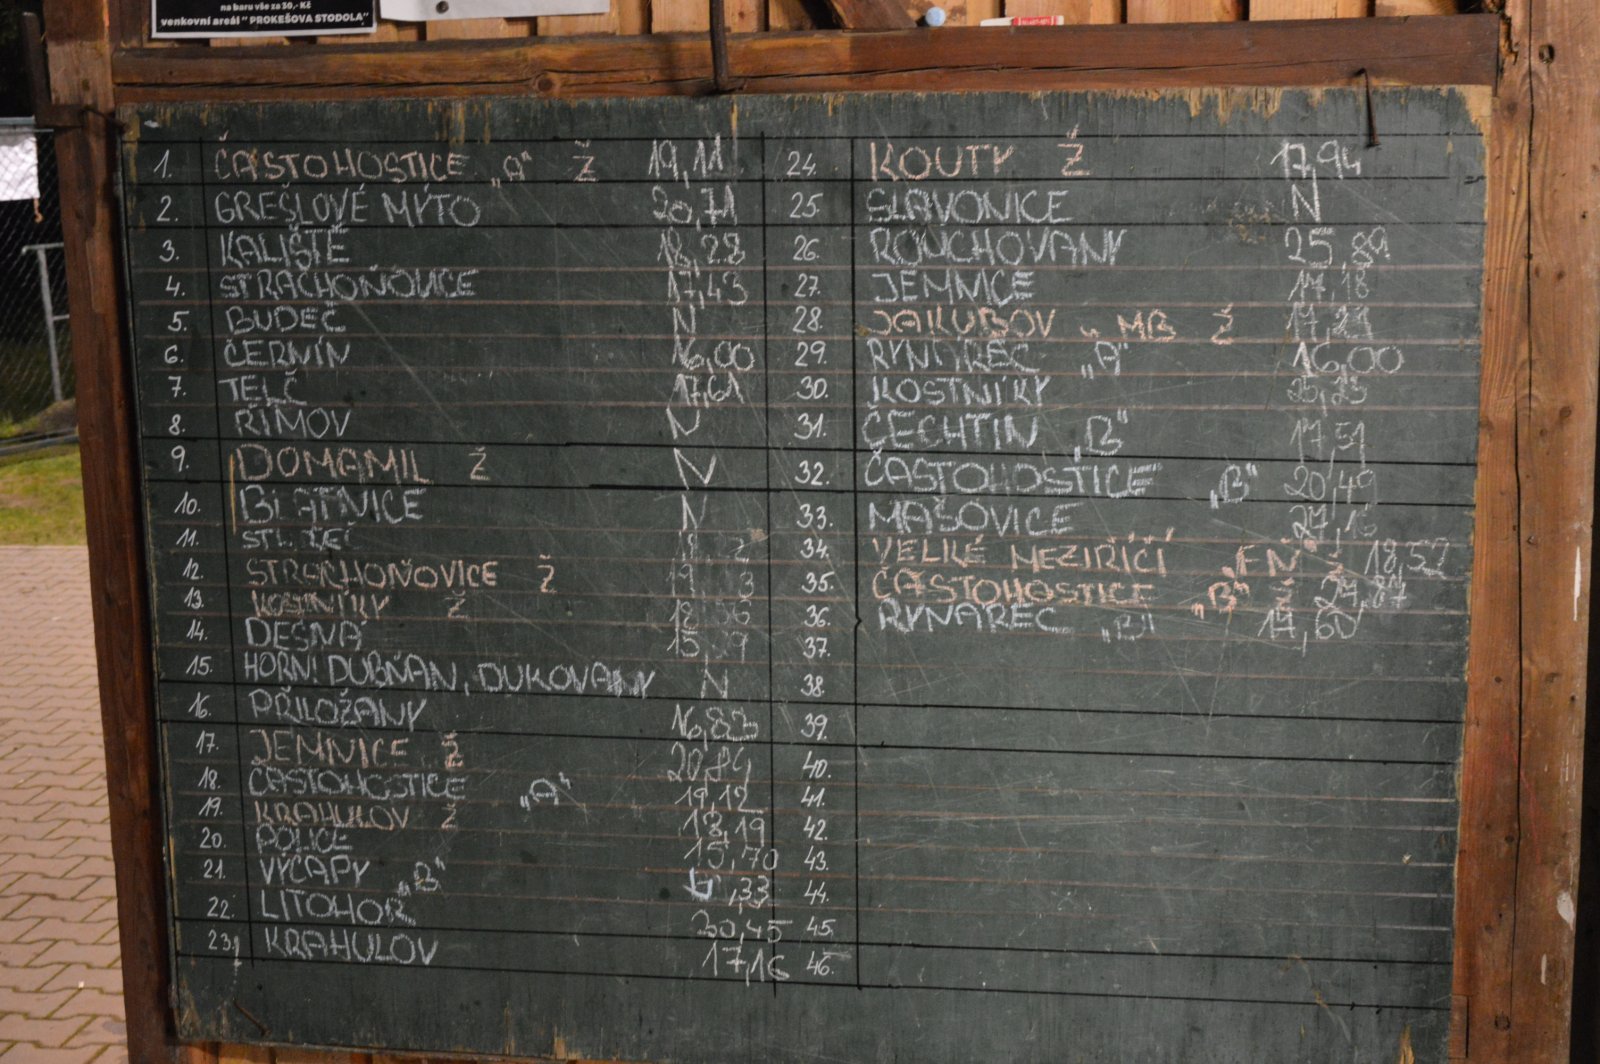 na baru vše za 30,- Kč
venkovní areál " PROKEŠOVA STODOLA"
1. ČASTOHOSTICE „A" Ž 19,11
2. GREŠLOVÉ MÝTO 20,71
3. KALIŠTĚ 18,28
4. STRACHOŇOVICE 17,43
5. BUDEČ N
6. ČERNÍN 16,00
7. TELČ 17,61
8. ŘÍMOV N
9. DOMAMIL Ž N
10. BLATNICE N
11.
12. STRACHOŇOVICE Ž
13. KOSTNÍKY Ž
14. DEŠNÁ
15. HORNÍ DUBŇAN, DUKOVANY N
16. PŘILOŽANY 16,83
17. JEMNICE Ž
18. ČASTOHOSTICE „A" 19,12
19. KRAHULOV Ž 18,19
20. POLICE 15,70
21. VÝČAPY „B" ,33
22. LITOHOŘ 30,45
23. KRAHULOV 17,16
24. KOUTY Ž 17,94
25. SLAVONICE N
26. ROUCHOVANY 25,89
27. JEMNICE 17,18
28. JAKUBOV u MB Ž 17,21
29. RYNÁREC „A" 16,00
30. KOSTNÍKY
31. ČECHTÍN „B" 17,51
32. ČASTOHOSTICE „B" 20,49
33. MAŠOVICE
34. VELIKÉ MEZIŘÍČÍ 18,52
35. ČASTOHOSTICE „B" Ž
36. RYNAREC „B"
37.
38.
39.
40.
41.
42.
43.
44.
45.
46.